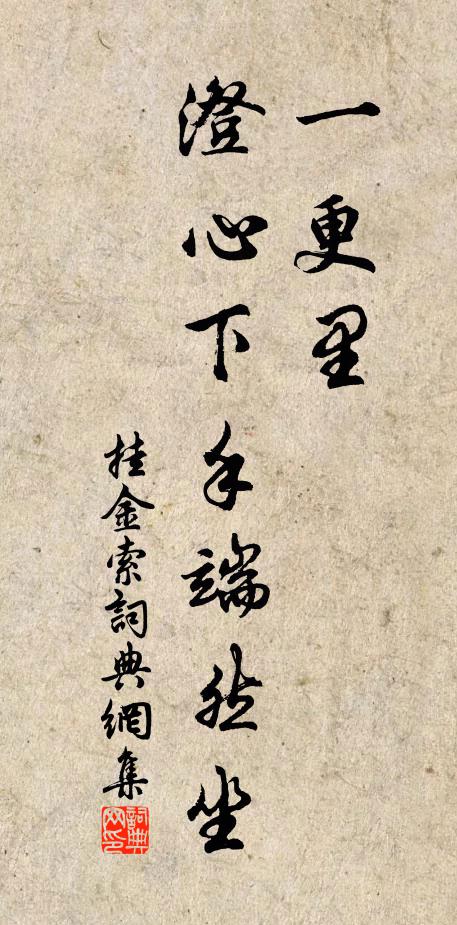 一更里
澄心下手端然坐
挂金索詞典網集
詞典網印